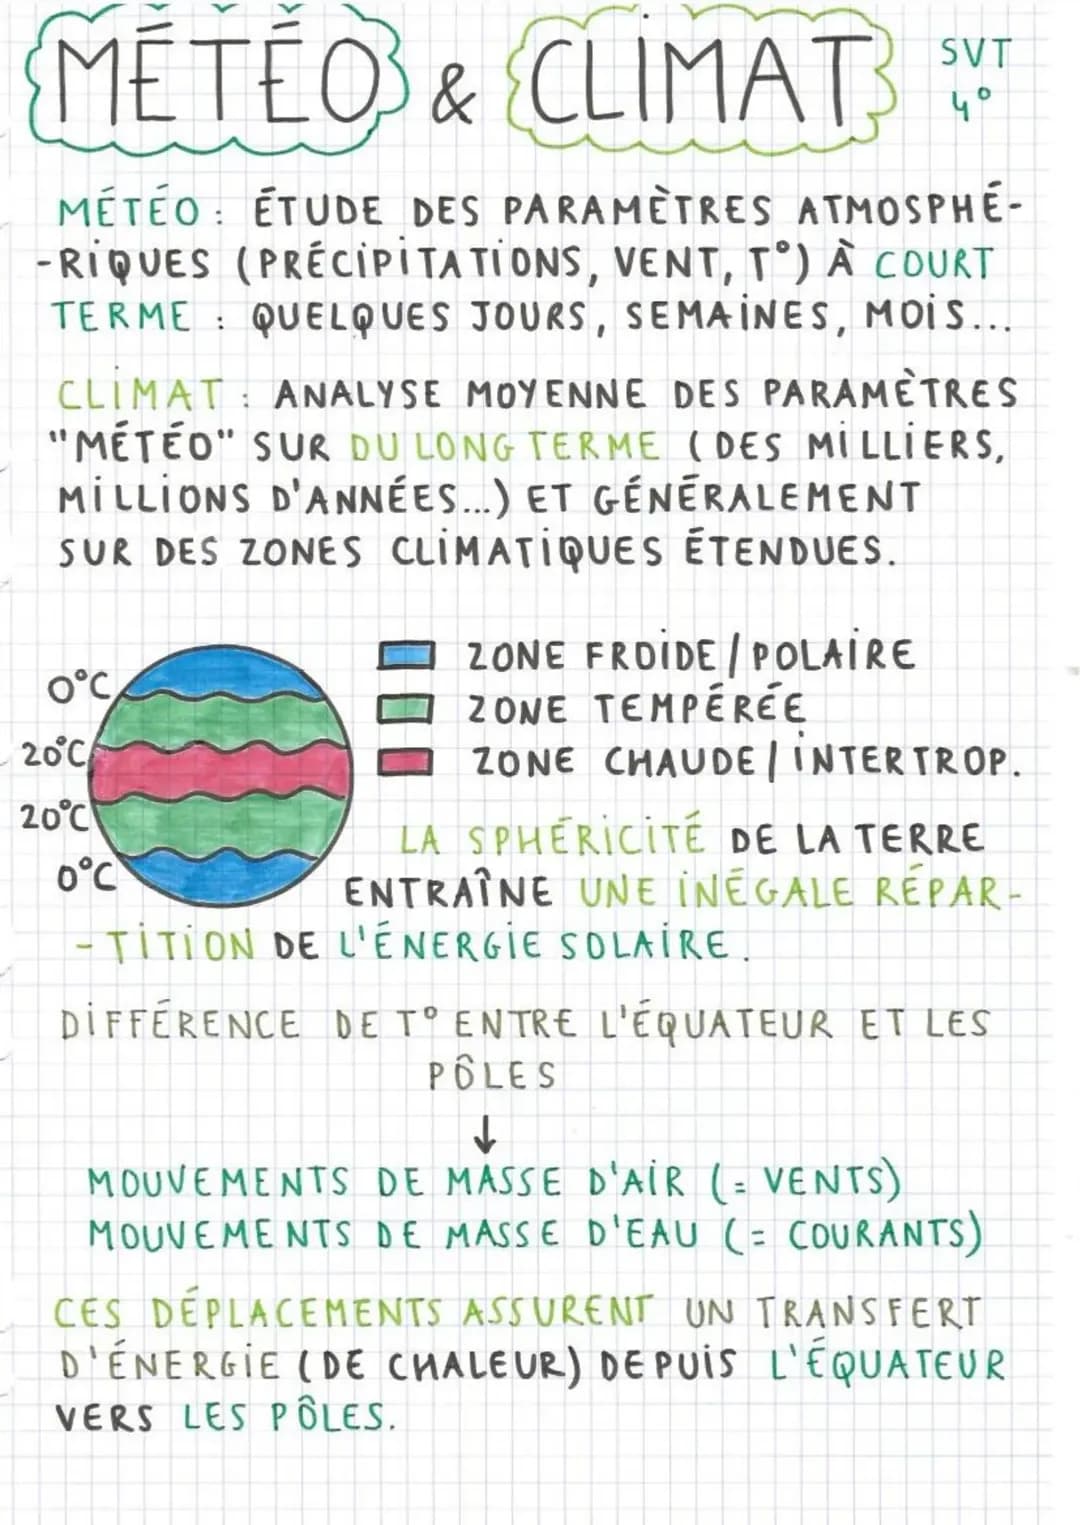 MÉTÉO & CLIMAT SVT
4°
MÉTÉO : ÉTUDE DES PARAMÈTRES ATMOSPHÉ-
-RIQUES (PRÉCIPITATIONS, VENT, T°) À COURT
TERME : QUELQUES JOURS, SEMAINES, MOIS...
CLIMAT : ANALYSE MOYENNE DES PARAMÈTRES
"MÉTÉO" SUR DU LONG TERME (DES MILLIERS,
MILLIONS D'ANNÉES...) ET GÉNÉRALEMENT
SUR DES ZONES CLIMATIQUES ÉTENDUES.
0°C
20°C
20°C
0°C
ZONE FROIDE / POLAIRE
ZONE TEMPÉRÉE
ZONE CHAUDE / INTERTROP.
LA SPHÉRICITÉ DE LA TERRE
ENTRAÎNE UNE INÉGALE RÉPAR-
-TITION DE L'ÉNERGIE SOLAIRE.
DIFFÉRENCE DE T° ENTRE L'ÉQUATEUR ET LES
PÔLES
↓
MOUVEMENTS DE MASSE D'AIR (= VENTS)
MOUVEMENTS DE MASSE D'EAU (= COURANTS)
CES DÉPLACEMENTS ASSURENT UN TRANSFERT
D'ÉNERGIE (DE CHALEUR) DEPUIS L'ÉQUATEUR
VERS LES PÔLES.